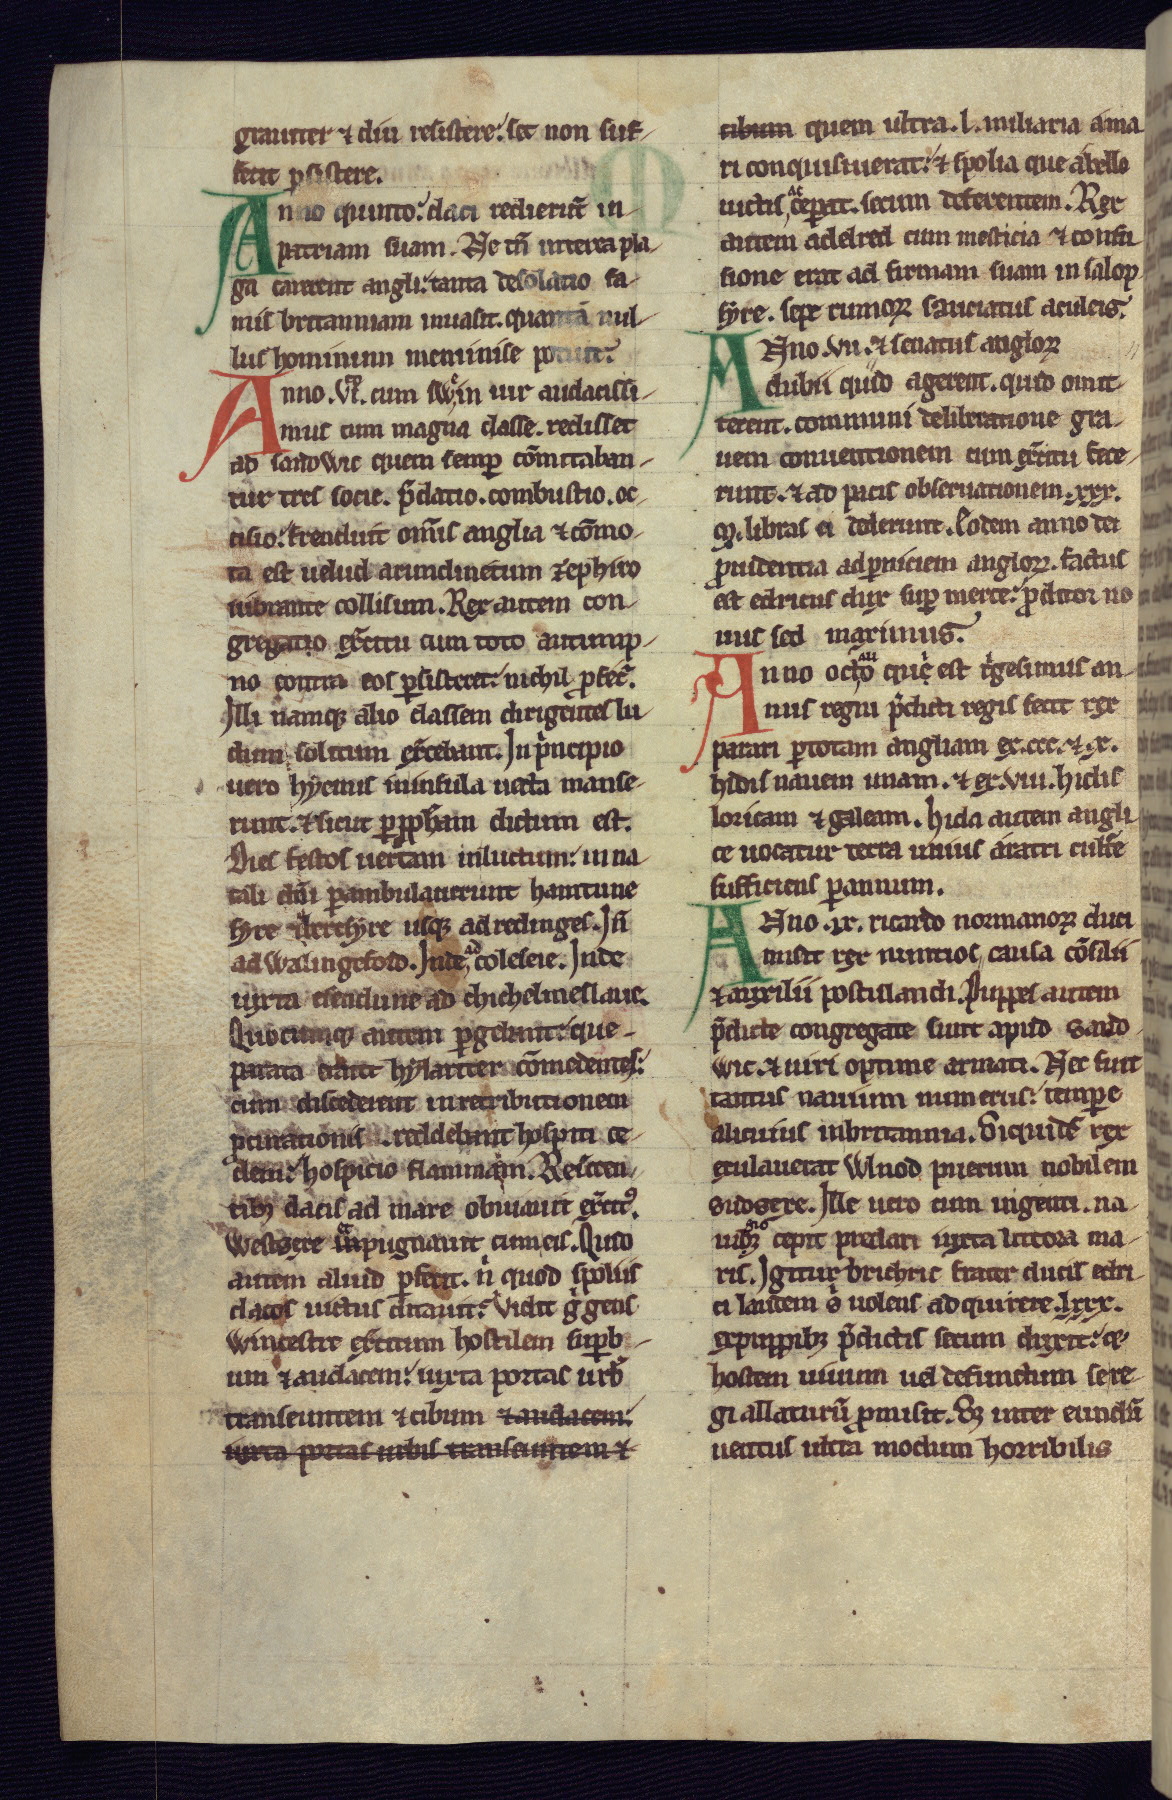 grauiter ⁊ diu resistere: set non suf-
fecit ꝑsistere.
Anno quinto: daci redierūt in
patriam suam. Ne tn̄ interea pla
ga carerent angli: tanta desolatio fa-
mis britanniam inuasit. quantā nul-
lus hominum meminisse potuit.
Anno. vi. cum swein uir audacissi-
mus cum magna classe. redisset
ad sandwic quem semꝑ cōmitaban-
tur tres socie. p̄datio. combustio. oc-
cisio: frenduit om̄is anglia ⁊ cōmo-
ta est uelud arundinetum zephiro
uibrante collisum. Rex autem con-
gregato ex̄citu cum toto autump-
no contra eos ꝑsisteret: nichil ꝓfec̄.
Illi namqꝫ alio classem dirigentes lu
dum solitum ex̄cebant. In p̄ncipio
uero hyemis in insula uecta manse-
runt. ⁊ sicut ꝑ ꝓph̄am dictum est.
Dies festos uertam in luctum: in na
tali dn̄i ꝑambulauerunt hamtune
syre ⁊ berchyre usqꝫ ad redinges. In̄
ad walingeford. Inde ad coleseie. Inde
iuxta esendune ad chichelmeslaue.
Quocumqꝫ autem ꝑgebant: que-
parata erant hylariter cōmedentes:
cum discederent in retributionem
ꝓcurationis. reddebant hospiti ce-
dem: hospicio flammam. Reuerten-
tibꝫ dacis ad mare obuiauit ex̄cit᾽.
Westsexe et pugnauit cum eis. Quid
autem aliud ꝓfecit. n̄ quod spoliis
dacos uictus ditauit: Vidit gͥ gens
Wincestre ex̄citum hostilem suꝑb-
um ⁊ audacem: iuxta portas urb̄
transeuntem ⁊ cibum ⁊ audacem:
iuxta portas urbis transeuntem ⁊
cibum quem ultra. l. miliaria a ma
ri conquisiuerat: ⁊ spolia que a bello
uictis ac ceperat. secum deferentem. Rex
autem adelred cum mesticia ⁊ confu
sione erat ad firmam suam in salop
syre. sepe rumoꝝ sauciatus aculeis.
Anno .vii. ⁊ senatus angloꝝ
dubii quid agerent. quid omit-
terent. communi deliberatione gra-
uem conuentionem cum ex̄citu fece-
runt. ⁊ ad pacis obseruationem. xxx.
m̄. libras ei dederunt. Eodem anno dei
ꝓuidentia ad ꝑniciem angloꝝ. factus
est edricus dux suꝑ merce: ꝓditor no
uus sed maximus.
Anno octauo qui est tͥgesimus an-
nus regni p̄dicti regis fecit rex
parari ꝑ totam angliam ex. ccc. ⁊ x.
hidis nauem unam. ⁊ ex. viii. hidis
loricam ⁊ galeam. hida autem angli
ce uocatur terra unius aratri culture
sufficiens ꝑ annum.
Anno .ix. ricardo normanoꝝ duci
misit rex nuntios causa cōsilii
⁊ auxilii postulandi. Puppes autem
p̄dicte congregate sunt apud sand-
wic. ⁊ uiri optime armati. Nec fuit
tantus nauium numerus: tempore
alicuius in britannia. Siquidē rex
exulauerat Wlnod puerum nobilem
sudsexe. Ille uero cum uigenti. na-
uibꝫ cepit predari iuxta littora ma-
ris. Igitur brichric frater ducis edri
ci laudem s̄ uolens adquirere. lxxx.
ex puppibꝫ p̄dictis secum duxit: ⁊
hostem uiuum uel defunctum se re-
gi allaturū ꝓmisit. Sꝫ inter eundū
uentus ultra modum horribilis